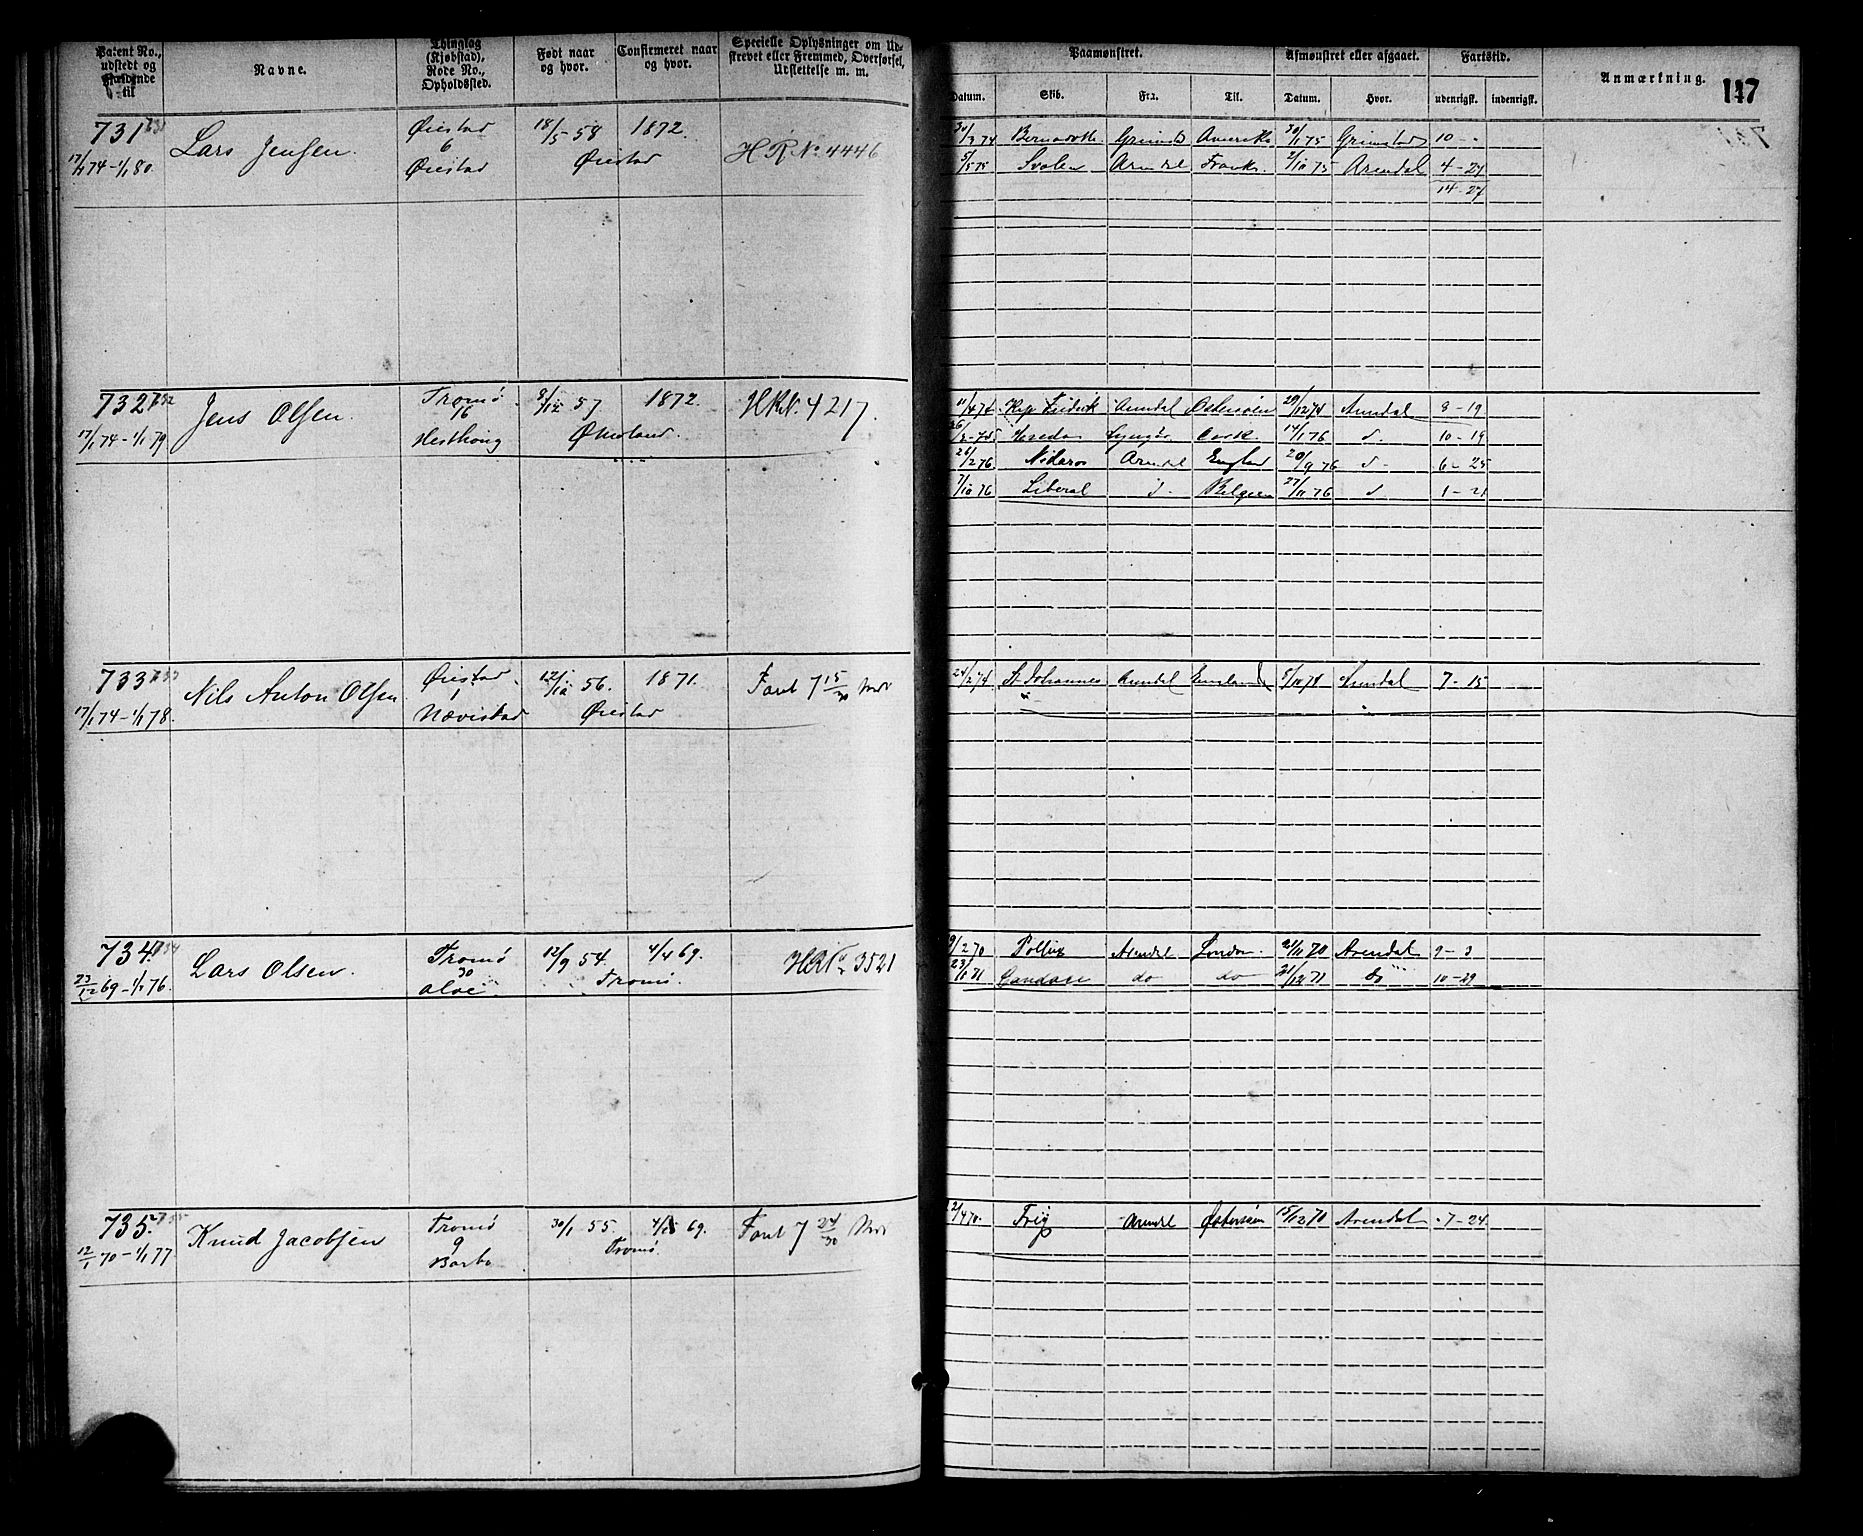 Patent No., udstedt og gjældende til
Navne.
Thinglag (Kjøbstad), Rode No., Opholdssted.
Født naar og hvor.
Confirmeret naar og hvor.
Specielle Oplysninger om Udskrevet eller Fremmed, Overførsel, Udslettelse m. m.
Paamønstret.
Afmønstret eller afgaaet.
Fartstid.
Anmærkning.
147
Datum.
Skib.
Fra.
Til.
Datum.
Hvor.
udenrigsk.
indenrigsk.
731 731
17/1 74 - 1/1 80.
Lars Jensen.
Øiestad
6
Øiestad
18/5 58
1872.
Øiestad
H R No 4446
30/3 74 Bernadotte Grimstd Amerika 30/1 75 Grimstad 10 - -
5/5 75 Svalen Arendal Frankr. 2/10 75 Arendal 4 - 27
14 - 27
732 732
17/1 74 - 1/1 79
Jens Olsen.
Tromø
16
Hesthaug
8/12 57
1872.
H R N. 4217.
11/4 74 Arendal Østersøen 29/12 74 Arendal 8 - 19
Lyngør Cork. 14/1 76 d. 10 - 19
26/2 76 Nidaros Arendal England 20/9 76 d - 6 - 25
7/10 76 Liberal d. Belgien 27/11 76 d 1 - 21
733 733
17/1 74 - 1/1 78.
Nils Anton Olsen
Øiestad
1
Nævistad
12/10 56.
1871.
Øiestad
24/2 74 St. Johannes Arendal England 8/10 74 Arendal 7 - 15
734 734
23/12 69 - 1/1 76.
Lars Olsen.
Tromø
30
Alve
12/9 54.
4/4 69.
Tromø.
H R No 3521
9/2 70 Pollux Arendal London. 21/11 70 Arendal 9 - 3
23/1 71 do do 21/12 71 do 10 - 29
735. 735
12/1 70 - 1/1 77
Knud Jacobsen
Tromø
9
Barbo
30/1 55.
69.
Tromø.
2/4 70. Arendal Østersøen 15/12 70 Arendal 7 - 24